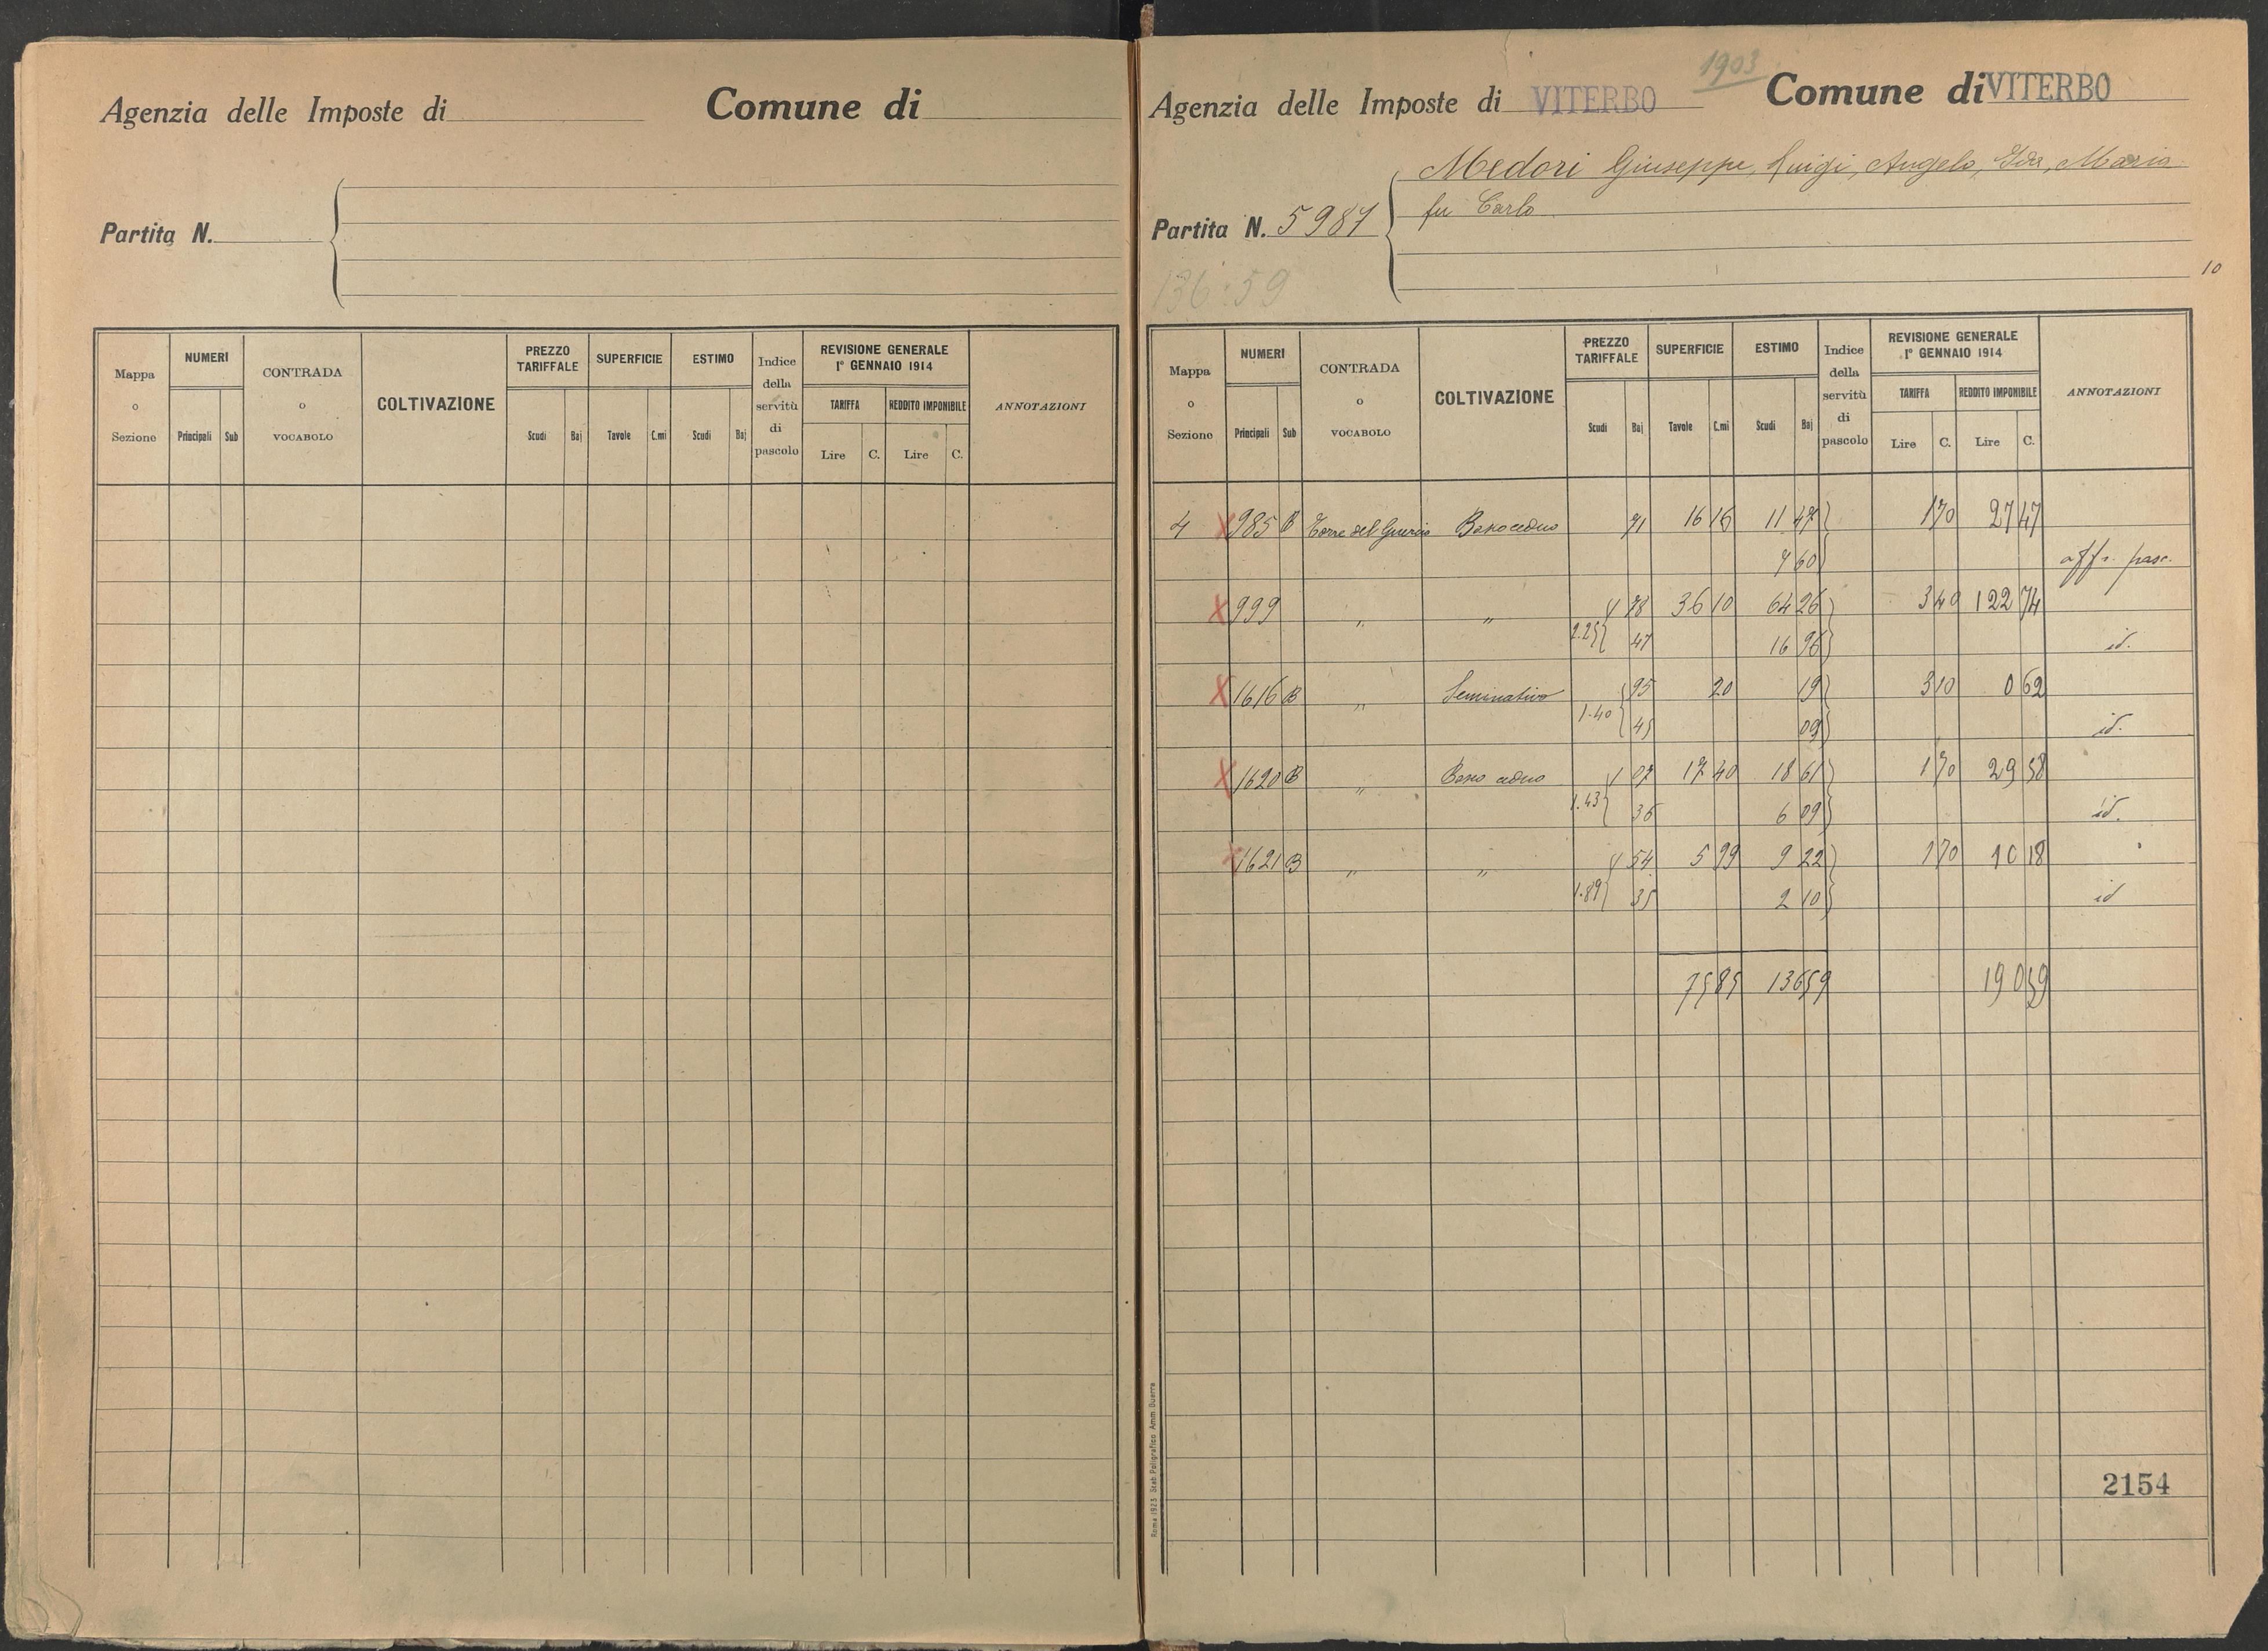 Agenzia delle Imposte di Comune di
Partita N.
Mappa o Sezione NUMERI Principali Sub CONTRADA o VOCABOLO COLTIVAZIONE PREZZO TARIFFALE Scudi Baj SUPERFICIE Tavole C.mi ESTIMO Scudi Baj Indice della servitù di pascolo REVISIONE GENERALE 1° GENNAIO 1914 TARIFFA Lire C. REDDITO IMPONIBILE Lire C. ANNOTAZIONI
1903
Agenzia delle Imposte di VITERBO Comune di VITERBO
Medori Giuseppe, Luigi, Angelo, Ida, Maria
fu Carlo
Partita N. 5987
136:59
10
Mappa o Sezione NUMERI Principali Sub CONTRADA o VOCABOLO COLTIVAZIONE PREZZO TARIFFALE Scudi Baj SUPERFICIE Tavole C.mi ESTIMO Scudi Baj Indice della servitù di pascolo REVISIONE GENERALE 1° GENNAIO 1914 TARIFFA Lire C. REDDITO IMPONIBILE Lire C. ANNOTAZIONI
4 X 985 B Torre del Bosco ceduo 71 16 16 11 47 1 70 27 47
7 60 affr. pasc.
X 999 " " 1 78 36 10 64 26 3 40 122 74
2.25 47 16 96 id.
X 1616 B " Seminativo 95 20 19 3 10 0 62
1.40 45 09 id.
X 1620 B " Bosco ceduo 1 07 17 40 18 61 1 70 29 58
1.43 36 6 09 id.
X 1621 B " " 1 54 5 99 9 22 1 70 10 18
1.89 35 2 10 id
75 85 136 59 190 59
2154
Roma 1923 Stab. Poligrafico Amm. Guerra